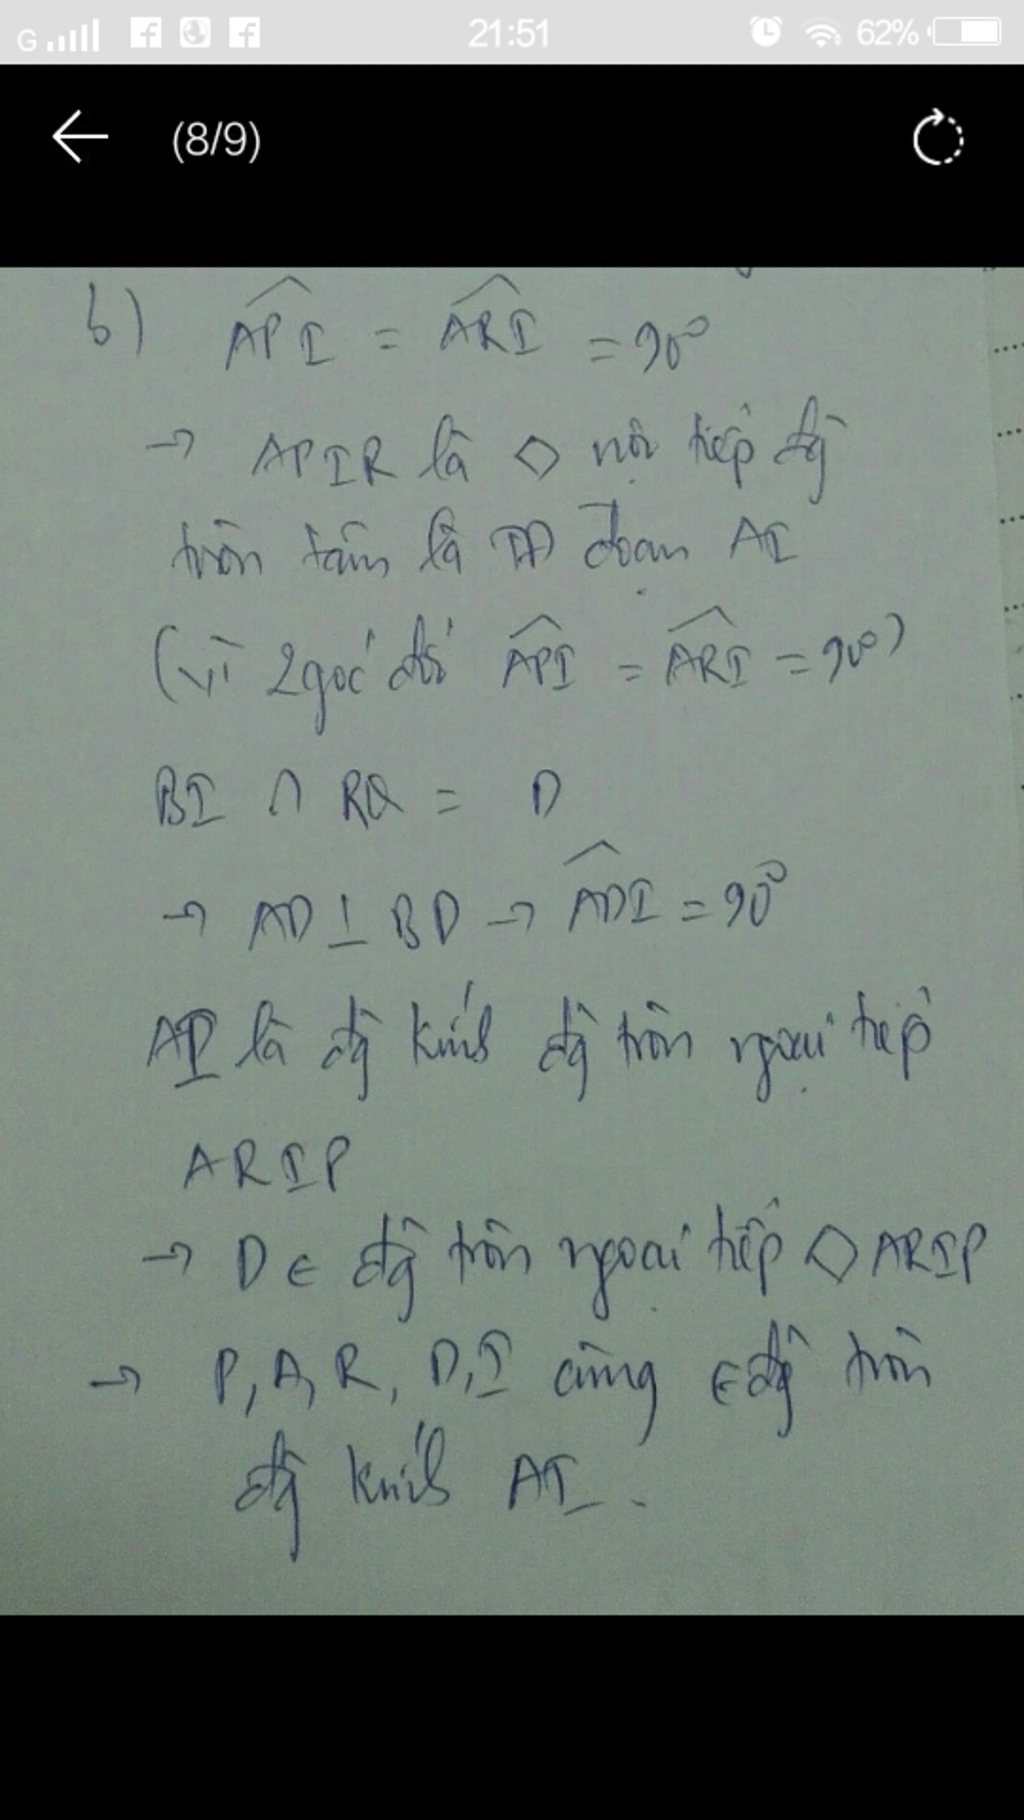 G 21:51 62%
(8/9)
b) API = ARI = 90°
→ APIR là ◇ nội tiếp đg
tròn tâm là TĐ đoạn AI
(vì 2 góc đối API = ARI = 90°)
BI ∩ RQ = D
→ AD ⊥ BD → ADI = 90°
AI là đg kính đg tròn ngoại tiếp
ARIP
→ D ∈ đg tròn ngoại tiếp ◇ ARIP
→ P, A, R, D, I cùng ∈ đg tròn
đg kính AI.